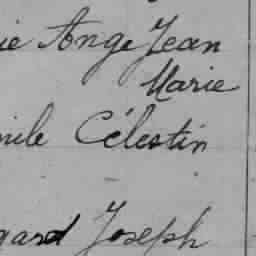 ie Ange Jean
Marie
mile Célestin
gard Joseph